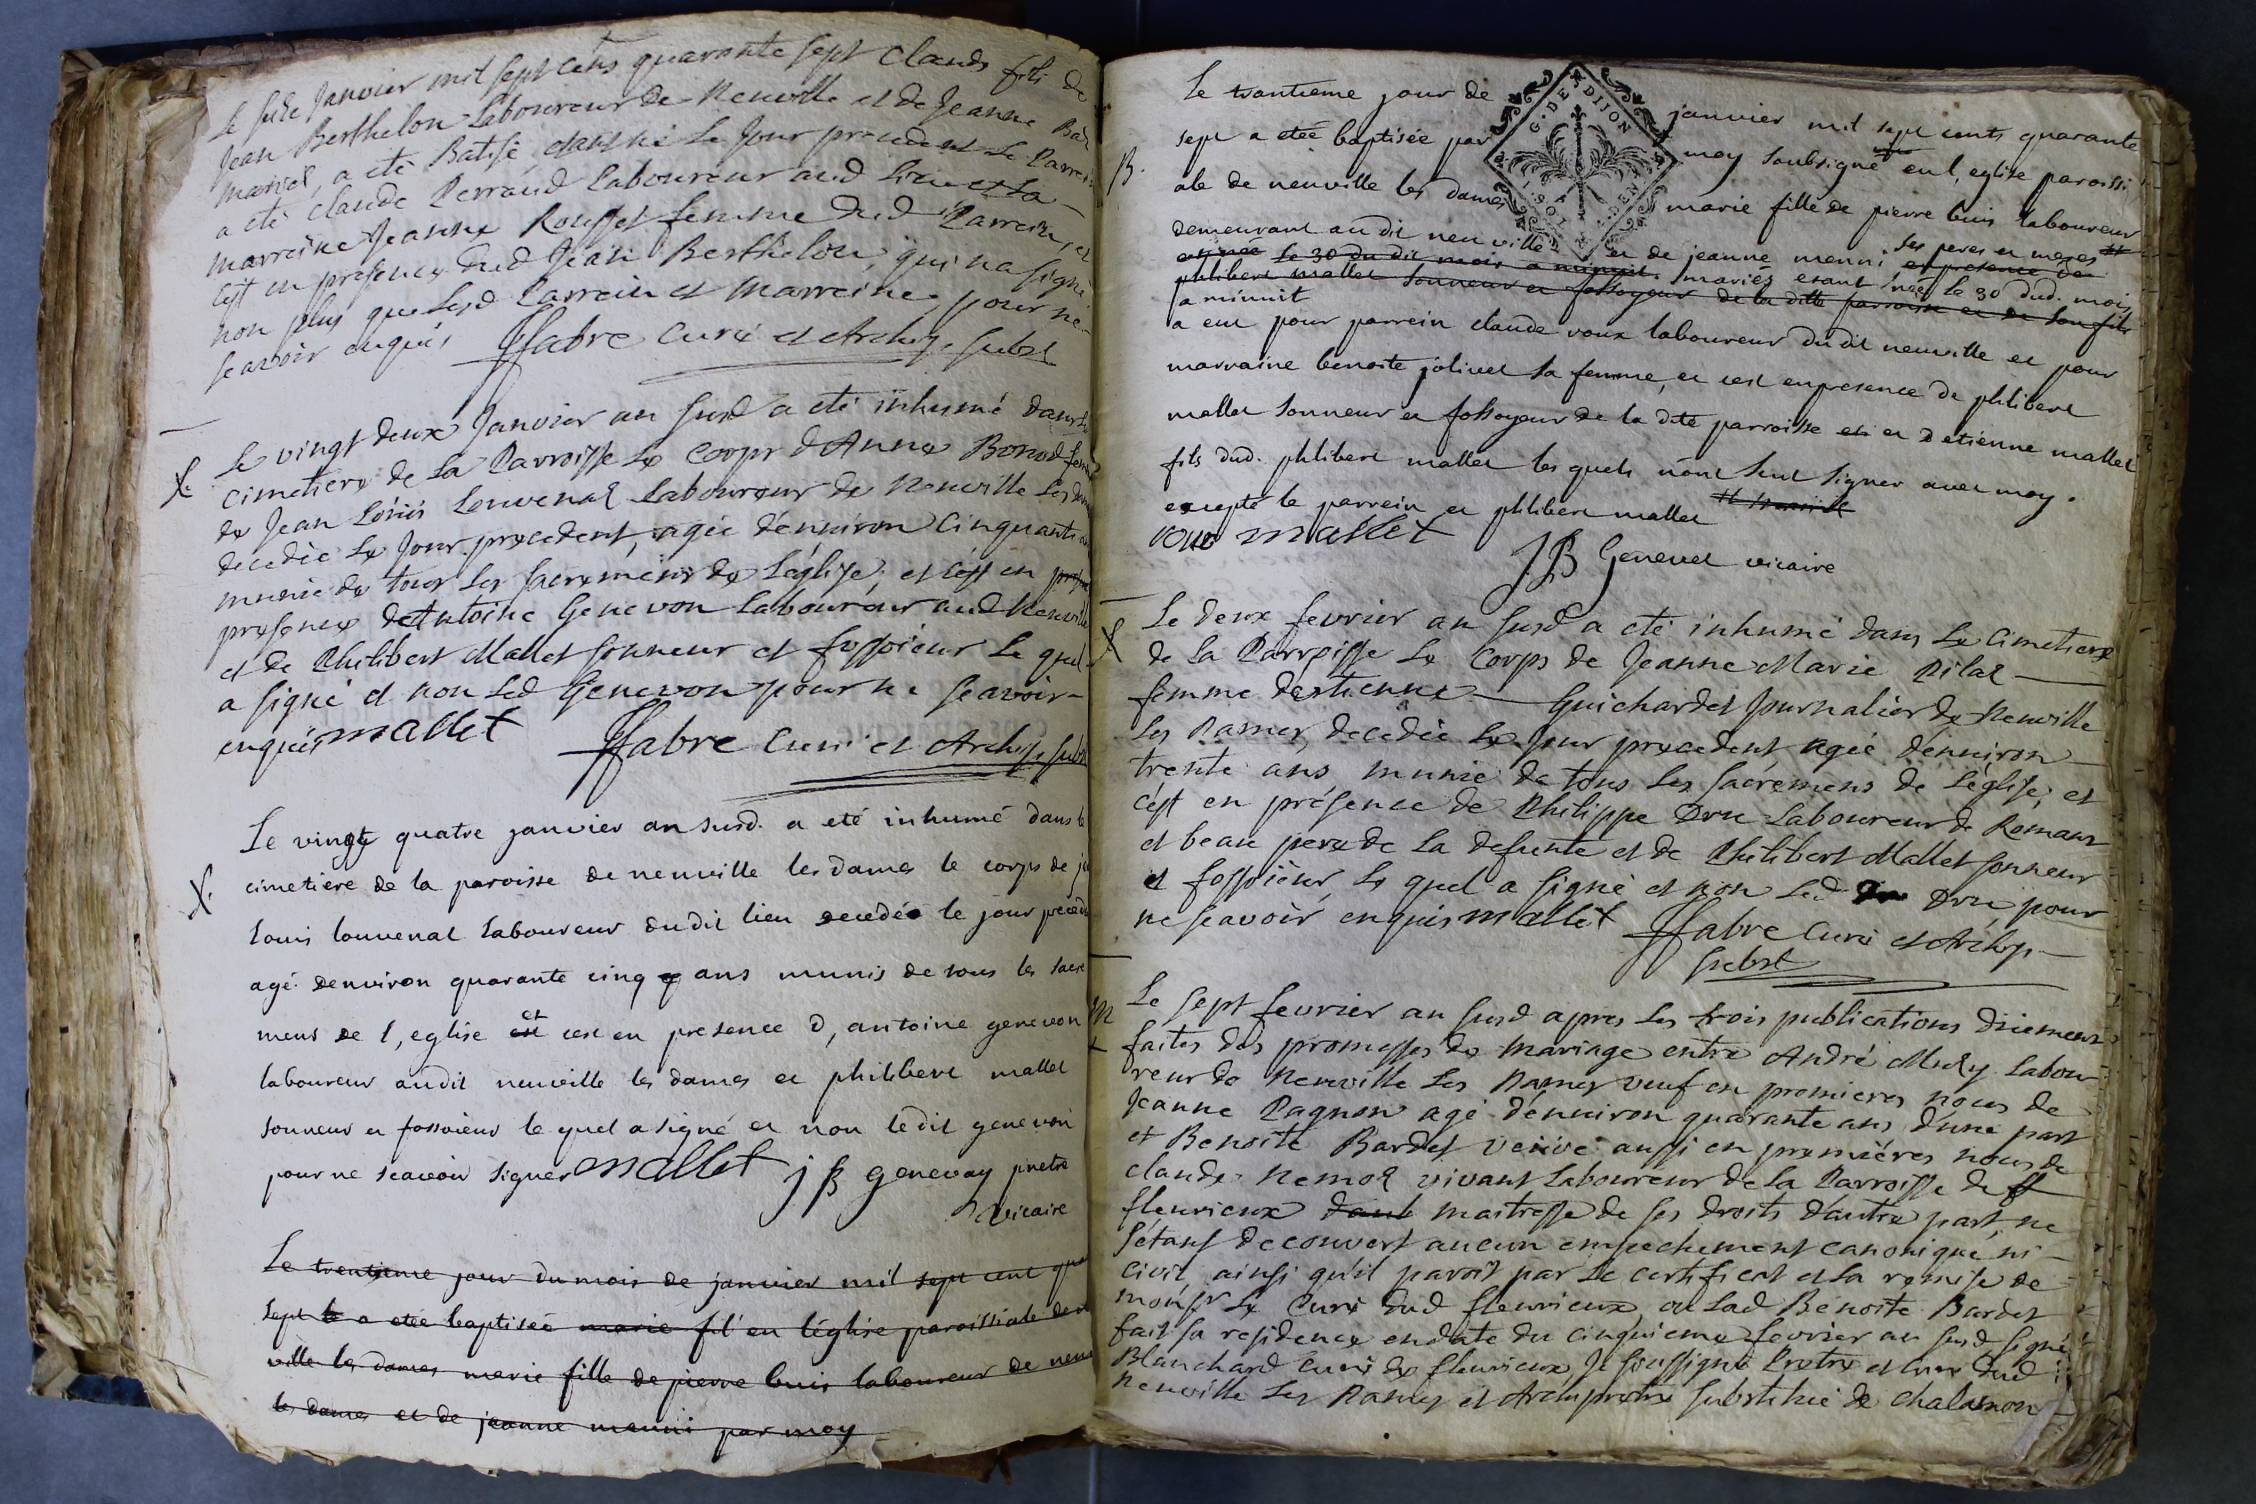 Le seize Janvier mil sept cens quarante sept Claude fils de
Jean Berthelon Laboureur de Neuville et de Jeanne
a eté Batisé, etant né Le Jour precedent Le Parrein
a eté claude Perraud Laboureur aud Lieu et La
marreine Jeanne Rousset femme dud Parrein, et
c'est en presence dud Jean Berthelon, qui n'a signé
non plus que lesd Parrein et Marreine pour ne
scavoir enquis ffabre Curé et Archip. Subst
Le vingt deux Janvier an susd a eté inhumé dans Le
X. cimetiere de La Parroisse Le Corps d'Anne femme
de Jean Loüis Louvenat Laboureur de Neuville Les
decedée Le Jour precedent, agée d'environ Cinquante
munie de tous Les sacremens de L'église, et c'est en
presence d'Antoine Genevon Laboureur aud Neuville
et de Philibert Mallet sonneur et fossoieur Le quel
a signé et non Led Genevon pour ne scavoir
enquis mallet ffabre Curé et Archip. subst
Le vingt quatre janvier an susd. a eté inhumé dans le
X. cimetiere de la paroisse de neuville les dames le corps de
Louis louvenat laboureur dudit lieu decedé le jour
agé denviron quarante cinq ans munis de tous les sacre
mens de l,eglise et cest en presence d,antoine genevon
laboureur audit neuville les dames et philibert mallet
sonneur et fossoieur le quel a signé et non ledit genevon
pour ne scavoir signer mallet j B genevay pretre
vicaire
Le trentieme jour du mois de janvier mil sept cent
sept a eté baptisée marie en léglise paroissiale de
ville les dames marie fille de pierre buis laboureur de
les dames et de jeanne menni par moy
G. DE DIJON
Le trantieme jour de janvier mil sept cents quarante
sept a eteé baptisée par moy soubsigné en l,eglise paroissi
B. ale de neuville les dames marie fille de pierre buis laboureur
demeurant au dit neuville et de jeanne menni ses peres et meres
le 30 du dit mois a minuit mariés etant née le 30 dud. mois
philibert mallet sonneur et fossoyeur de la ditte parroisse et de son fils
a minuit
a eut pour parrein claude voux laboureur dudit neuville et pour
marraine benoite jolivet sa femme, et cest en presence de philibert
mallet sonneur et fossoyeur de la dite parroisse et d etienne mallet
fils dud. philibert mallet les quels n'ont seut signer avec moy.
excepté le parrein et philibert mallet
voux mallet
JB Genevet vicaire
Le deux fevrier an susd a eté inhumé dans Le Cimetiere
X de La Parroisse Le Corps de Jeanne Marie Pilat
femme d'estienne Guichardet Journalier de Neuville
Les Dames, decedée Le Jour precedent agée d'environ
trente ans munie de tous Les sacremens de L'église, et
c'est en présence de Philippe Dru Laboureur de Romans
et beau pere de La defunte et de Philibert Mallet sonneur
et fossoieur, Le quel a signé et non Led Dru, pour
ne scavoir, enquis mallet ffabre Curé et Archip.
Subst
M Le sept fevrier an susd apres Les trois publications düement
faites des promesses de mariage entre André Labou
reur de Neuville Les Dames veuf en premieres noces de
Jeanne Pagnon agé d'environ quarante ans d'une part
et Benoite Bardet veuve aussi en premiéres noces de
claude vivant Laboureur de La Parroisse de
fleurieux dont maitresse de ses droits d'autre part, ne
s'étant decouvert aucun empechement canonique ni
civil ainsi qu'il paroit par Le certificat et La remise de
monsr Le Curé dud fleurieux, ou Lad Benoite Bardet
fait sa residence en date du cinquieme fevrier an susd signé
Blanchard curé de fleurieux Je soussigné Pretre et Curé dud
Neuville Les Dames et Archipretre substitué de Chalamon